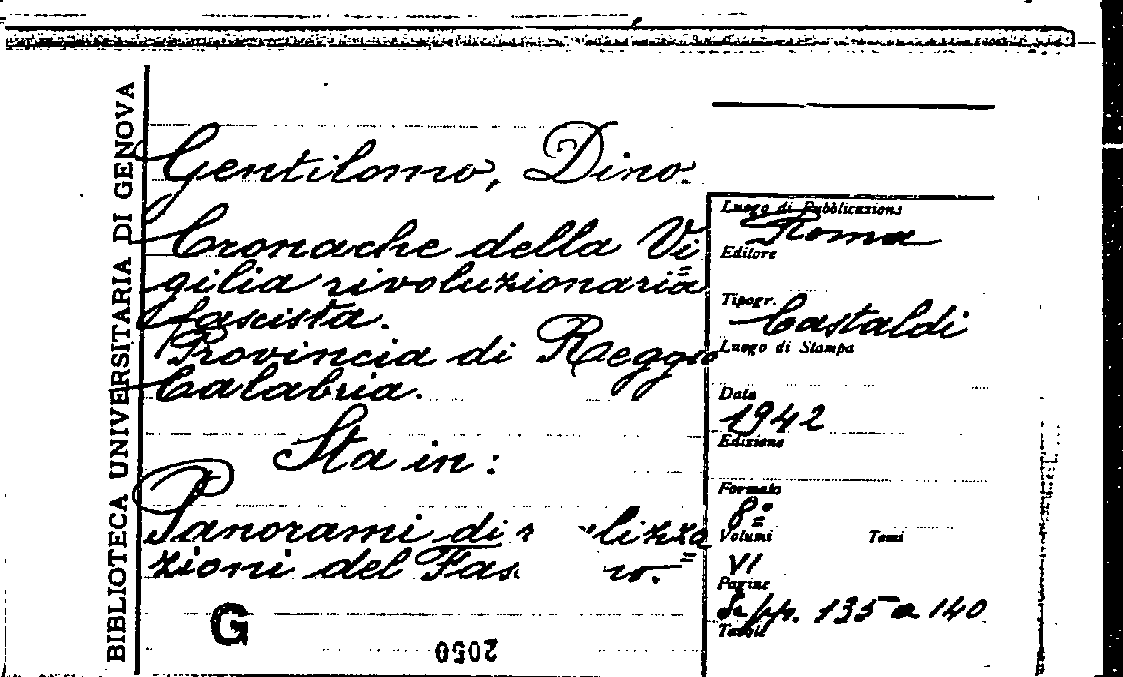 BIBLIOTECA UNIVERSITARIA DI GENOVA
Gentilomo, Dino.
Cronache della Vi=
gilia rivoluzionaria
fascista.
Provincia di Reggio
Calabria.
Sta in:
Panorami di
zioni del
G
2050
Luogo di Pubblicazione
Roma
Editore
Tipogr.
Castaldi
Luogo di Stampa
Data
1942
Edizione
Formato
8º
Volumi Tomi
VI
Pagine
Da pp. 135 a 140
Tavole